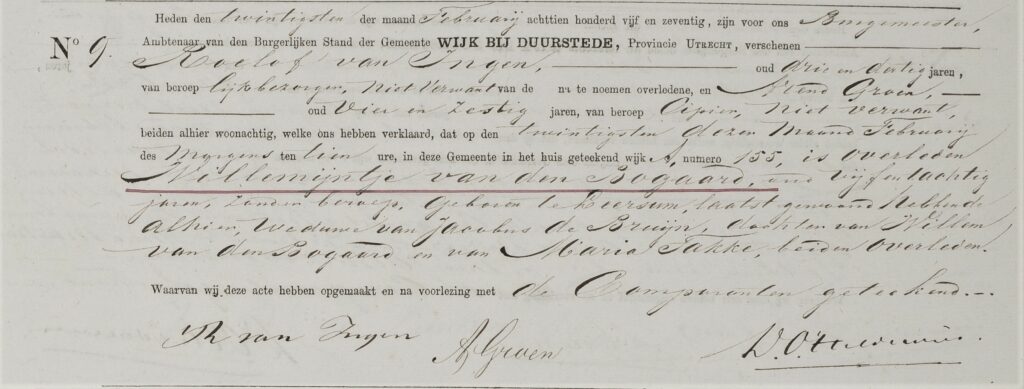 Heden den twintigsten der maand Februarij achttien honderd vijf en zeventig, zijn voor ons Burgemeester,
No 9. Ambtenaar van den Burgerlijken Stand der Gemeente WIJK BIJ DUURSTEDE, Provincie UTRECHT, verschenen
Roelof van Ingen, oud drie en dertig jaren,
van beroep lijkbezorger, niet verwant van de na te noemen overledene, en Arend Groen,
oud vier en zestig jaren, van beroep Cipier, niet verwant,
beiden alhier woonachtig, welke ons hebben verklaard, dat op den twintigsten dezer maand Februarij
des morgens ten tien ure, in deze Gemeente in het huis geteekend wijk A, numero 155, is overleden
Willemijntje van den Bogaard, oud vijf en tachtig
jaren, zonder beroep, geboren te Leersum, laatst gewoond hebbende
alhier, weduwe van Jacobus de Bruijn, dochter van Willem
van den Bogaard en van Maria Takke, beiden overleden.
Waarvan wij deze acte hebben opgemaakt en na voorlezing met de Comparanten geteekend.
R van Ingen
A Groen